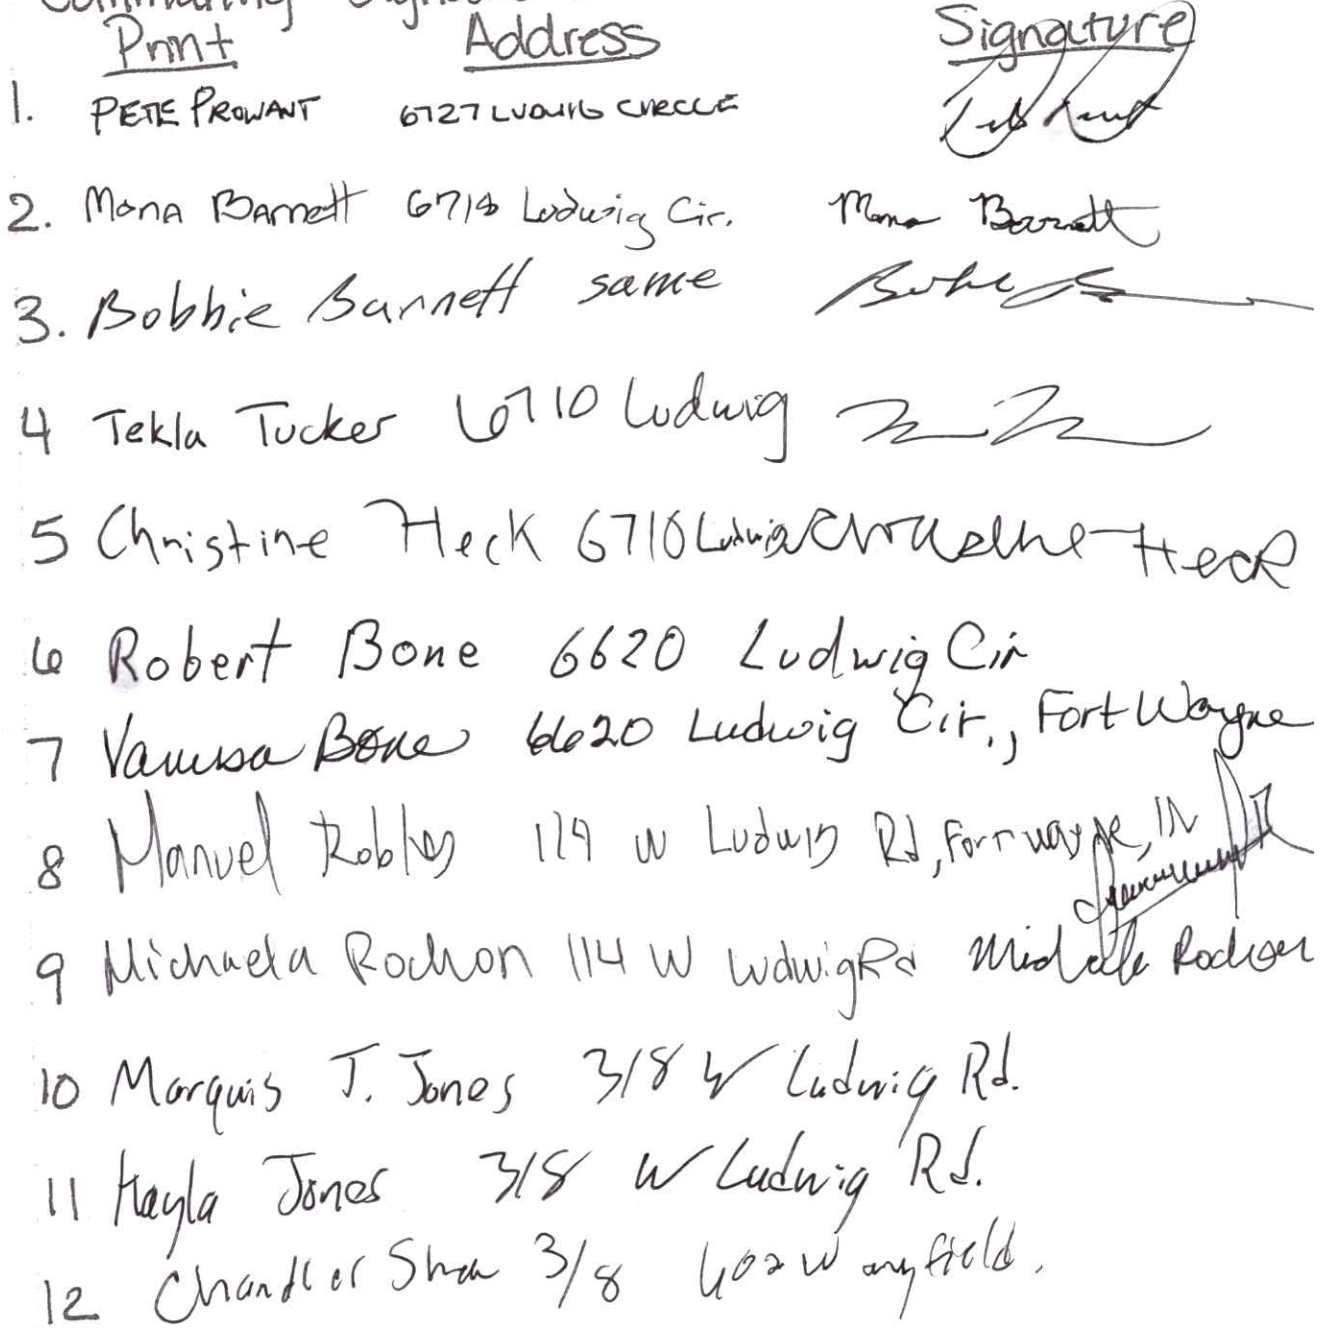 Print Address Signature
1. PETE PROWANT 6727 LUDWIG CIRCLE
2. Mona Barnett 6718 Ludwig Cir. Mona Barnett
3. Bobbie Barnett same
4 Tekla Tucker 6710 Ludwig
5 Christine Heck 6710 Ludwig Christine Heck
6 Robert Bone 6620 Ludwig Cir
7 Vanessa Bone 6620 Ludwig Cir., Fort Wayne
8 Manuel Robles 114 W Ludwig Rd, Fort wayne, IN
9 Michaela Rochon 114 W Ludwig Rd Rochon
10 Marquis J. Jones 318 W Ludwig Rd.
11 Kayla Jones 318 W Ludwig Rd.
12 Chandler 3/8 602 W